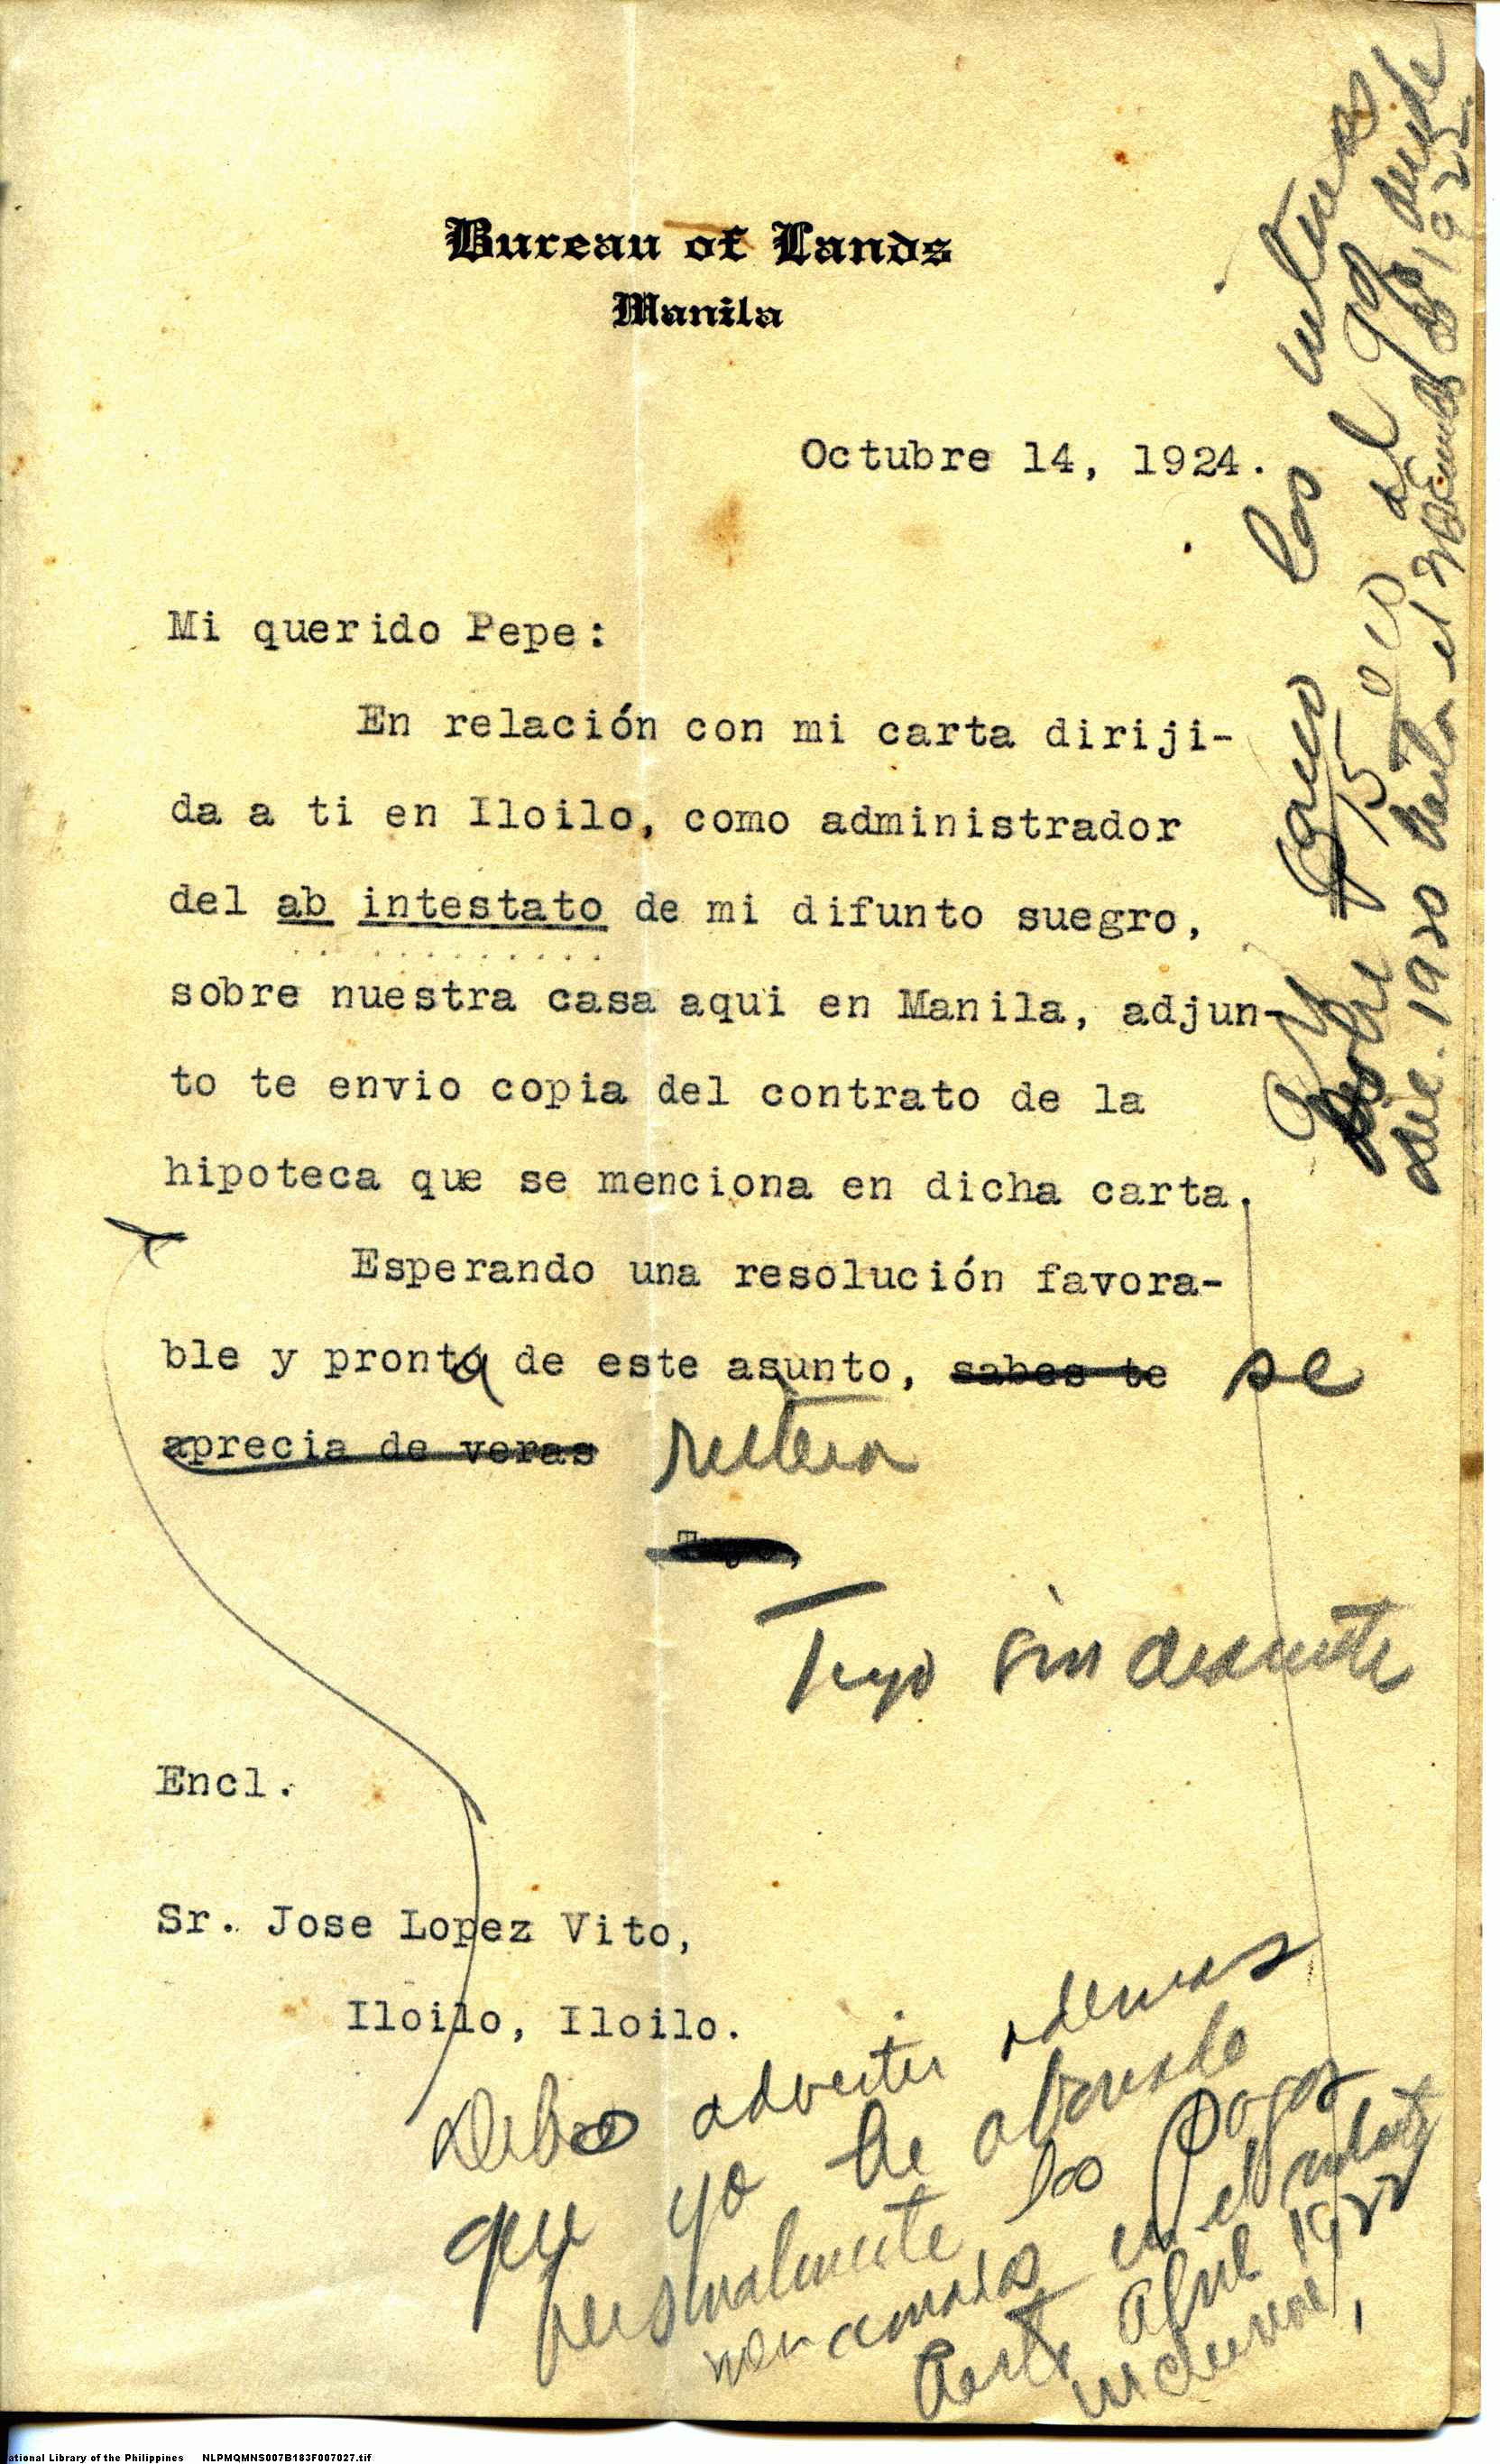 Bureau of Lands
Manila
Octubre 14, 1924.
Mi querido Pepe:
En relación con mi carta diriji-
da a ti en Iloilo, como administrador
del ab intestato de mi difunto suegro,
sobre nuestra casa aqui en Manila, adjun-
to te envio copia del contrato de la
hipoteca que se menciona en dicha carta.
Esperando una resolución favora-
ble y pronta de este asunto, sabes te se
aprecia de veras reitera
Tuyo,
Tuyo sin
Encl.
Sr. Jose Lopez Vito,
Iloilo, Iloilo.
Debo advertir ademas
que yo he abonado
personalmente los pagos
mencionados en el
hasta Abril 1922
inclusive
los ultimos
15 al desde
dic. 1920 hasta el 1922.
ational Library of the Philippines NLPMQMNS007B183F007027.tif